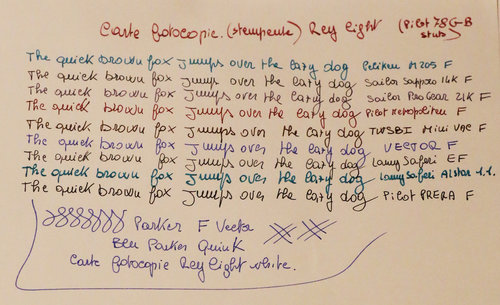 Carte fotocopie. (stampante) Rey Light (Pilot 78G-B stub)
The quick brown fox jumps over the lazy dog Pelikan M205 F
The quick brown fox jumps over the lazy dog Sailor Sapporo 14K F
The quick brown fox jumps over the lazy dog Sailor Pro Gear 21K F
The quick brown fox jumps over the lazy dog Pilot Metropolitan F
The quick brown fox jumps over the lazy dog TWSBI Mini Vac F
The quick brown fox jumps over the lazy dog VECTOR F
The quick brown fox jumps over the lazy dog Lamy Safari EF
The quick brown fox jumps over the lazy dog Lamy Safari Alstar 1.1.
The quick brown fox jumps over the lazy dog Pilot PRERA F
Parker F Vector
Blu Parker Quink
Carte fotocopie Rey light white.